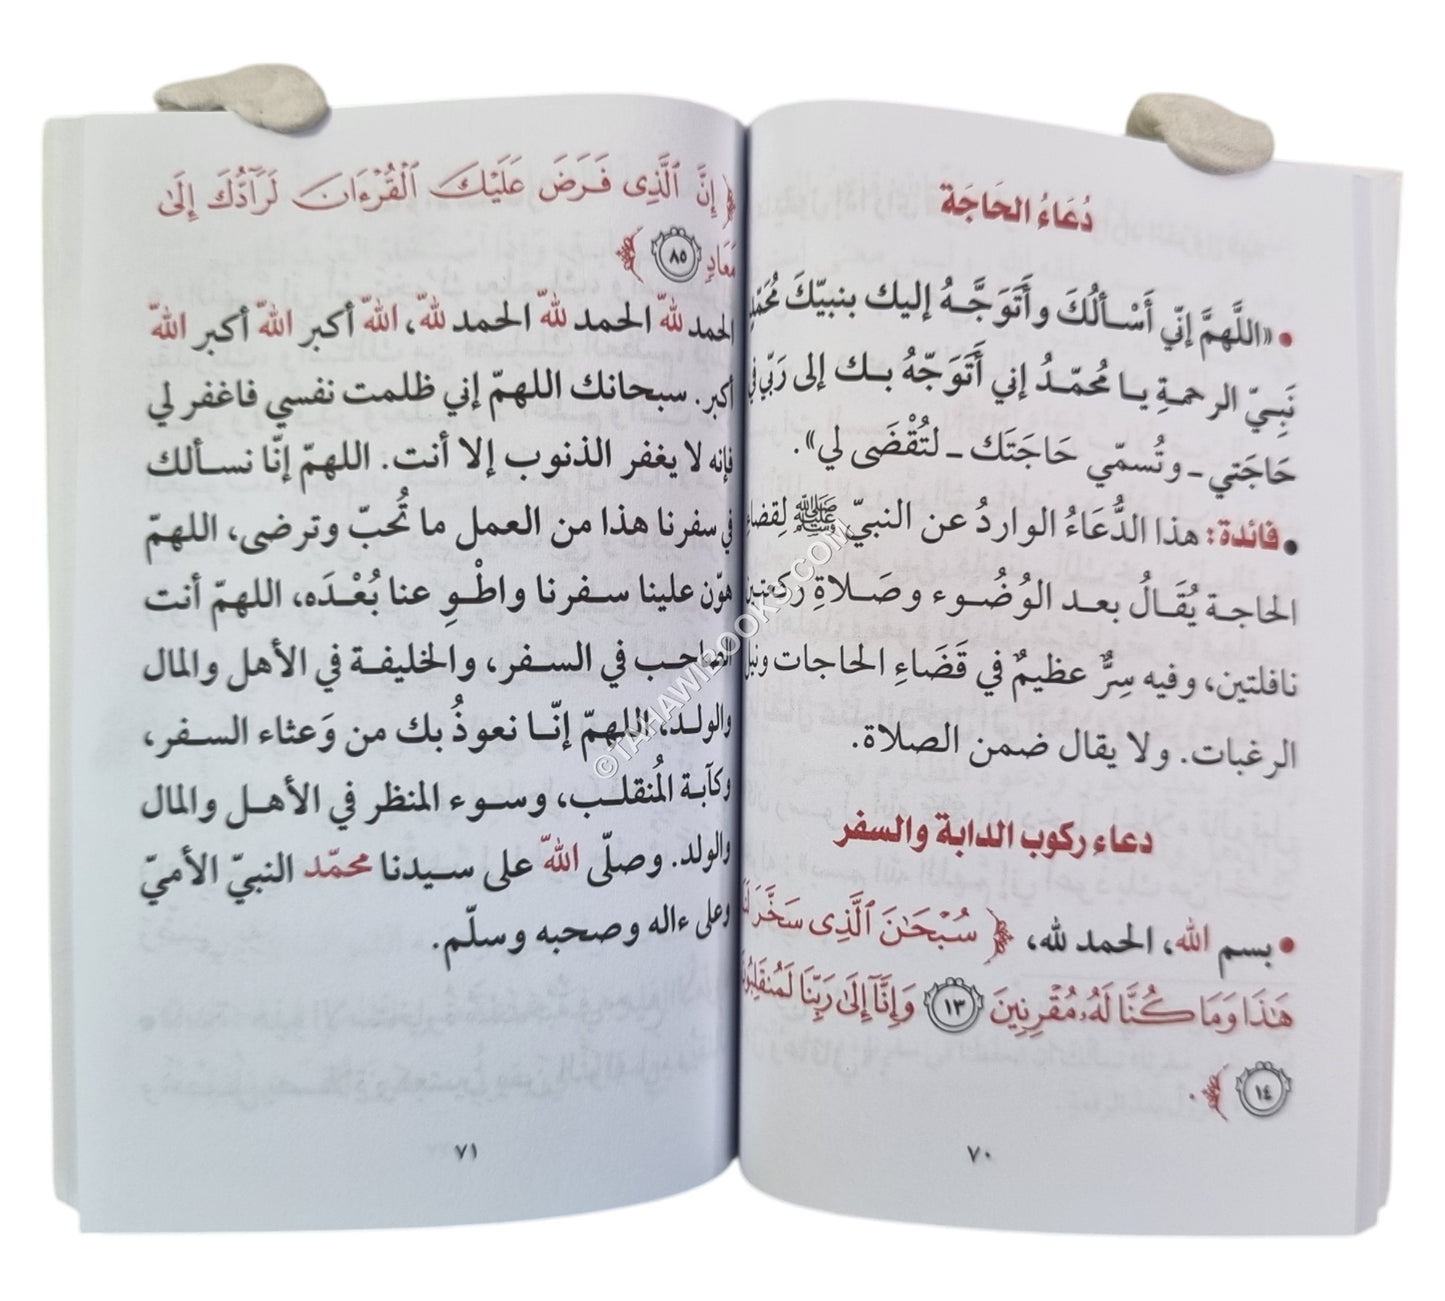 دُعَاءُ الحَاجَة
• «اللَّهمَّ إنّي أَسْألُكَ وأَتَوَجَّـهُ إليك بنبيّكَ مُحَمّدٍ
نَبِـيّ الرحمـةِ يـا مُحمّـدُ إني أَتَوَجّهُ بـك إلى رَبّي في
حَاجَتي ـ وتُسمّي حَاجَتَك ـ لتُقْضَى لي».
• فائدة: هذا الدُّعَاءُ الواردُ عن النبيّ ﷺ لِقضاءِ
الحاجـة يُقَـالُ بعـد الوُضُـوء وصَـلاةِ ركعتين
نافلتين، وفيه سِرٌّ عظيمٌ في قَضَاءِ الحاجات ونيل
الرغبات. ولا يقال ضمن الصلاة.
دعاء ركوب الدابة والسفر
• بسم الله، الحمد لله، ﴿ سُبْحَٰنَ ٱلَّذِى سَخَّرَ لَنَا
هَٰذَا وَمَا كُنَّا لَهُۥ مُقْرِنِينَ ١٣ وَإِنَّآ إِلَىٰ رَبِّنَا لَمُنقَلِبُونَ
١٤ ﴾.
٧٠
﴿ إِنَّ ٱلَّذِى فَرَضَ عَلَيْكَ ٱلْقُرْءَانَ لَرَآدُّكَ إِلَىٰ
مَعَادٍ ٨٥ ﴾
الحمد للهِ الحمد للهِ الحمد للهِ، اللهُ أكبر اللهُ أكبر اللهُ
أكبر. سبحانك اللهمّ إني ظلمت نفسي فاغفر لي
فإنه لا يغفر الذنوب إلا أنت. اللهمّ إنّا نسـألك
في سفرنا هذا من العمل ما تُحبّ وترضى، اللهمّ
هوّن علينا سـفرنا واطْـوِ عنا بُعْـدَه، اللهمّ أنت
الصاحب في السفر، والخليفـة في الأهل والمال
والولـد، اللهمّ إنّـا نعوذُ بك من وَعثاء السـفر،
وكآبـة المُنقلـب، وسـوء المنظر في الأهـل والمال
والولد. وصلّى اللهُ على سـيدنا محمّد النبيّ الأميّ
وعلى ءاله وصحبه وسلّم.
٧١
©TAHAWIBOOKS.COM